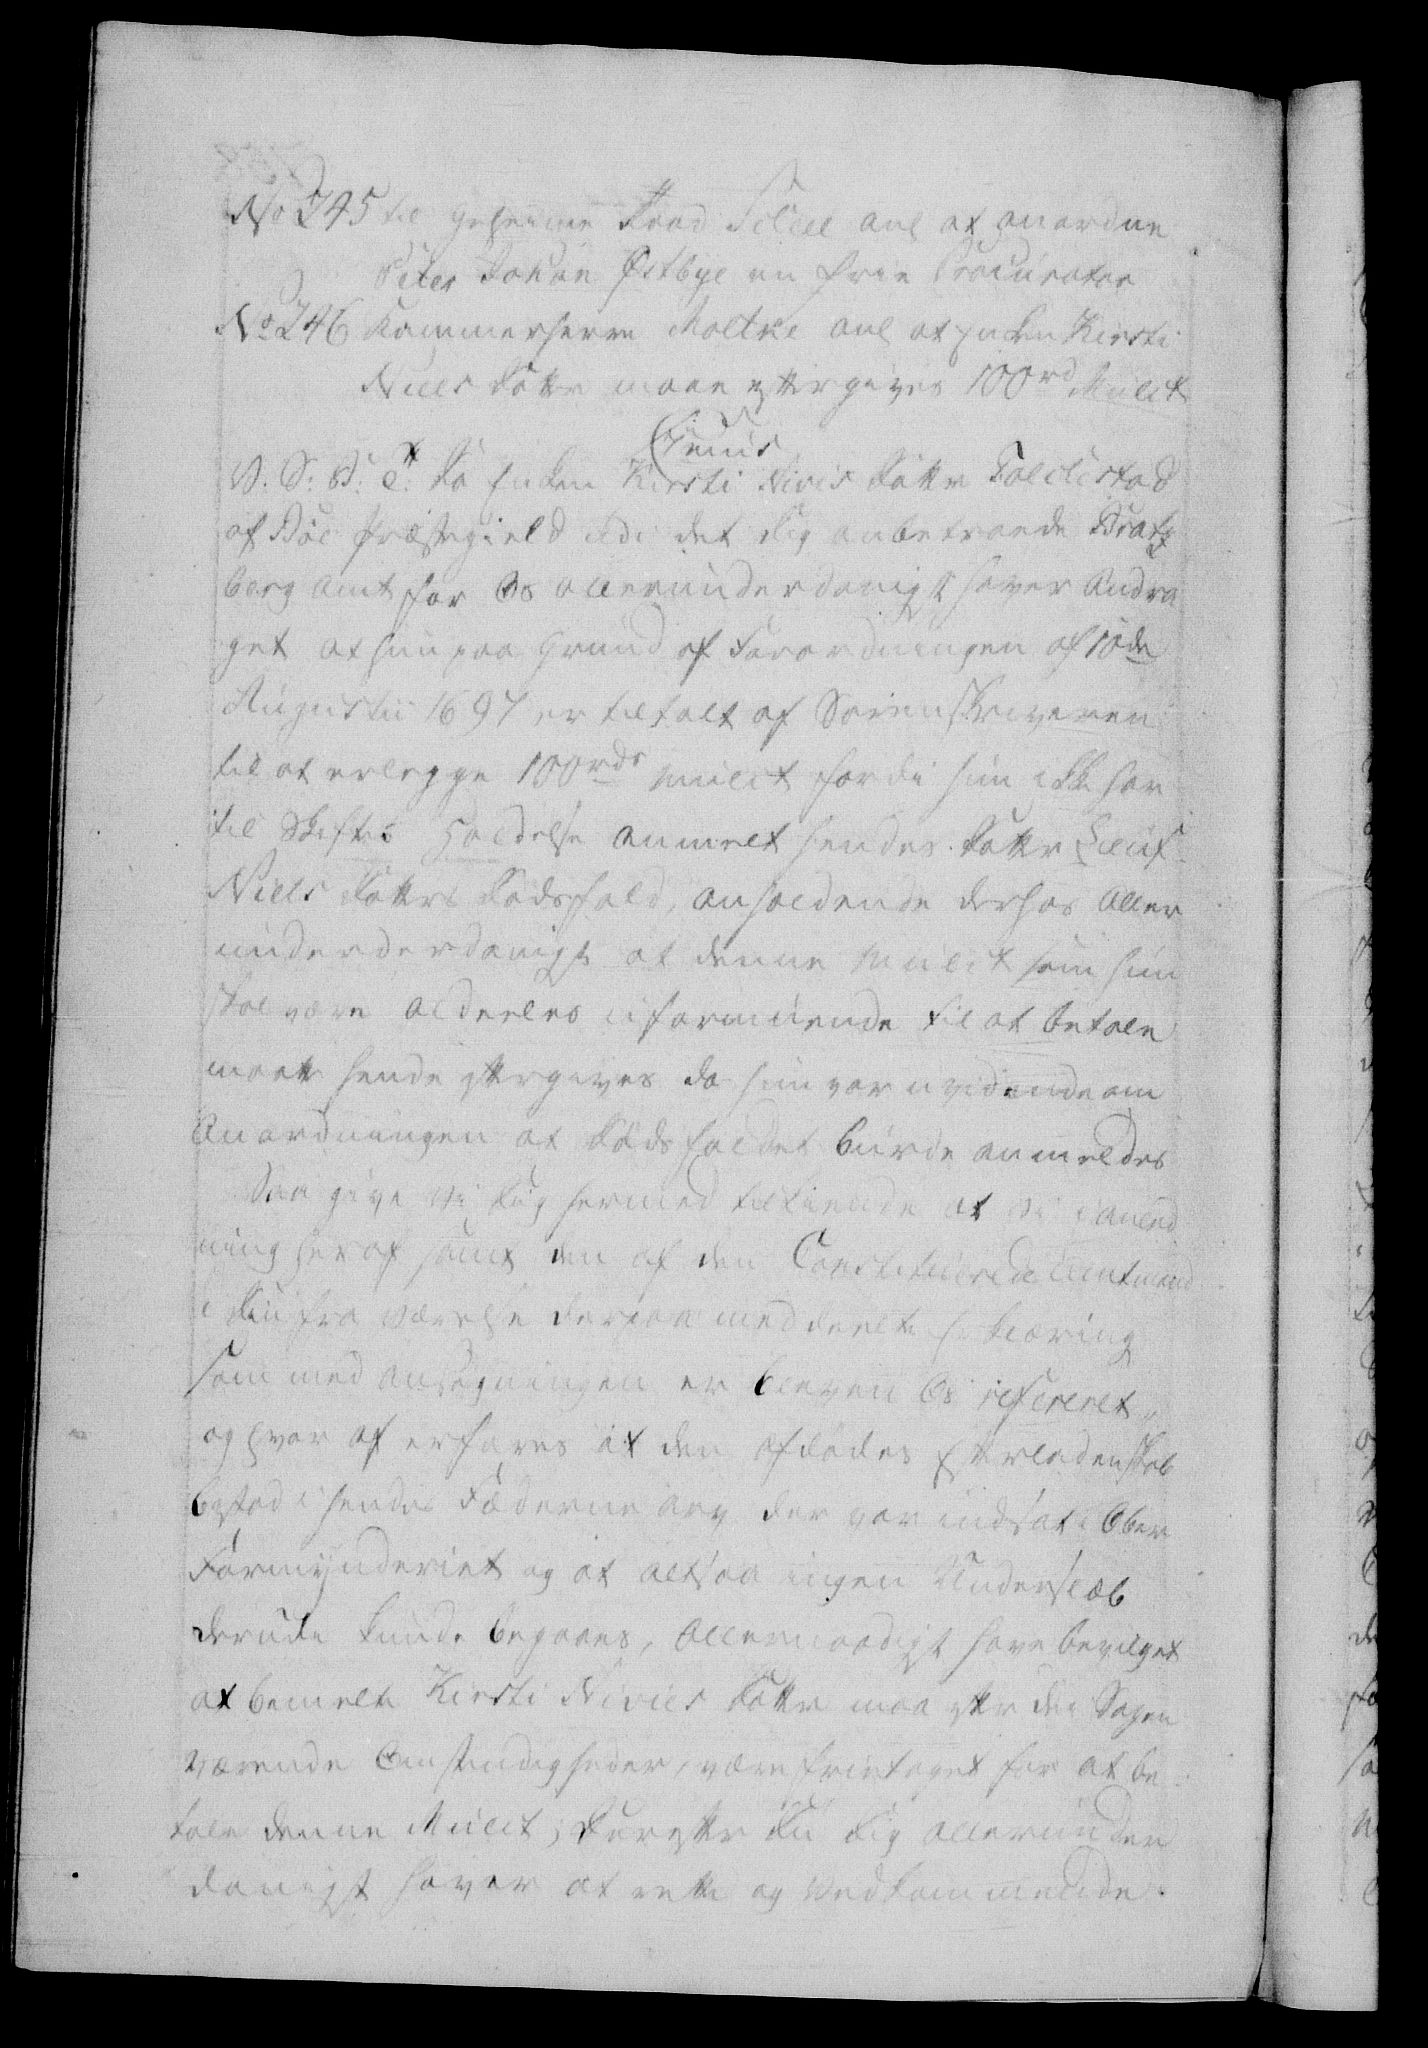 No 745 til geheime Raad Scheel anl at anordne
Peter Johan Østbye en frie Procurator
No 746 Kammerherre Moltke anl at Enken Kirsti
Niels datter maae eftergives 100 rd Mulct
V. S. G. T. Da Enken Kirsti Niris datter Foldestad
af Bøe Præstegield udi det dig anbetroede Brats
berg amt for Os allerunderdanigst haver Andra
get at hun paa Grund af Forordningen af 10de
Augustii 1697 er tiltalt af Sorenskriveren
til at erlegge 100 rdr Mulct fordi hun ikke har
til Skiftes Holdelse anmelt hendes datter
Niels datters dødsfald, anholdende derhos aller
underderdanigst at denne Mulct som hun
skal være aldeeles uformuende til at betale
maatte hende eftergives da hun var uvidende om
Anordningen at dødsfaldet burde anmeldes
Saa give Vi dig hermed tilkiende at Vi i anled
ning heraf samt den af den Constituerede Amtmand
i din fra værelse derpaa meddeelte Erklæring
som med ansøgningen er bleven Os refereret,
og hvor af erfares at den afdødes Efterladenskab
bestod i hendes Fæderne arv der var indsat i Ober
Formynderiet og at altsaa ingen Underslæb
derude kunde begaaes, allernaadigst have bevilget
at bemelte Kirsti Niels datter maa efter de i Sagen
værende Omstændigheder, være frietaget for at be
tale denne Mulct; Derefter du dig allerunder
danigst haver at rette og vedkommende